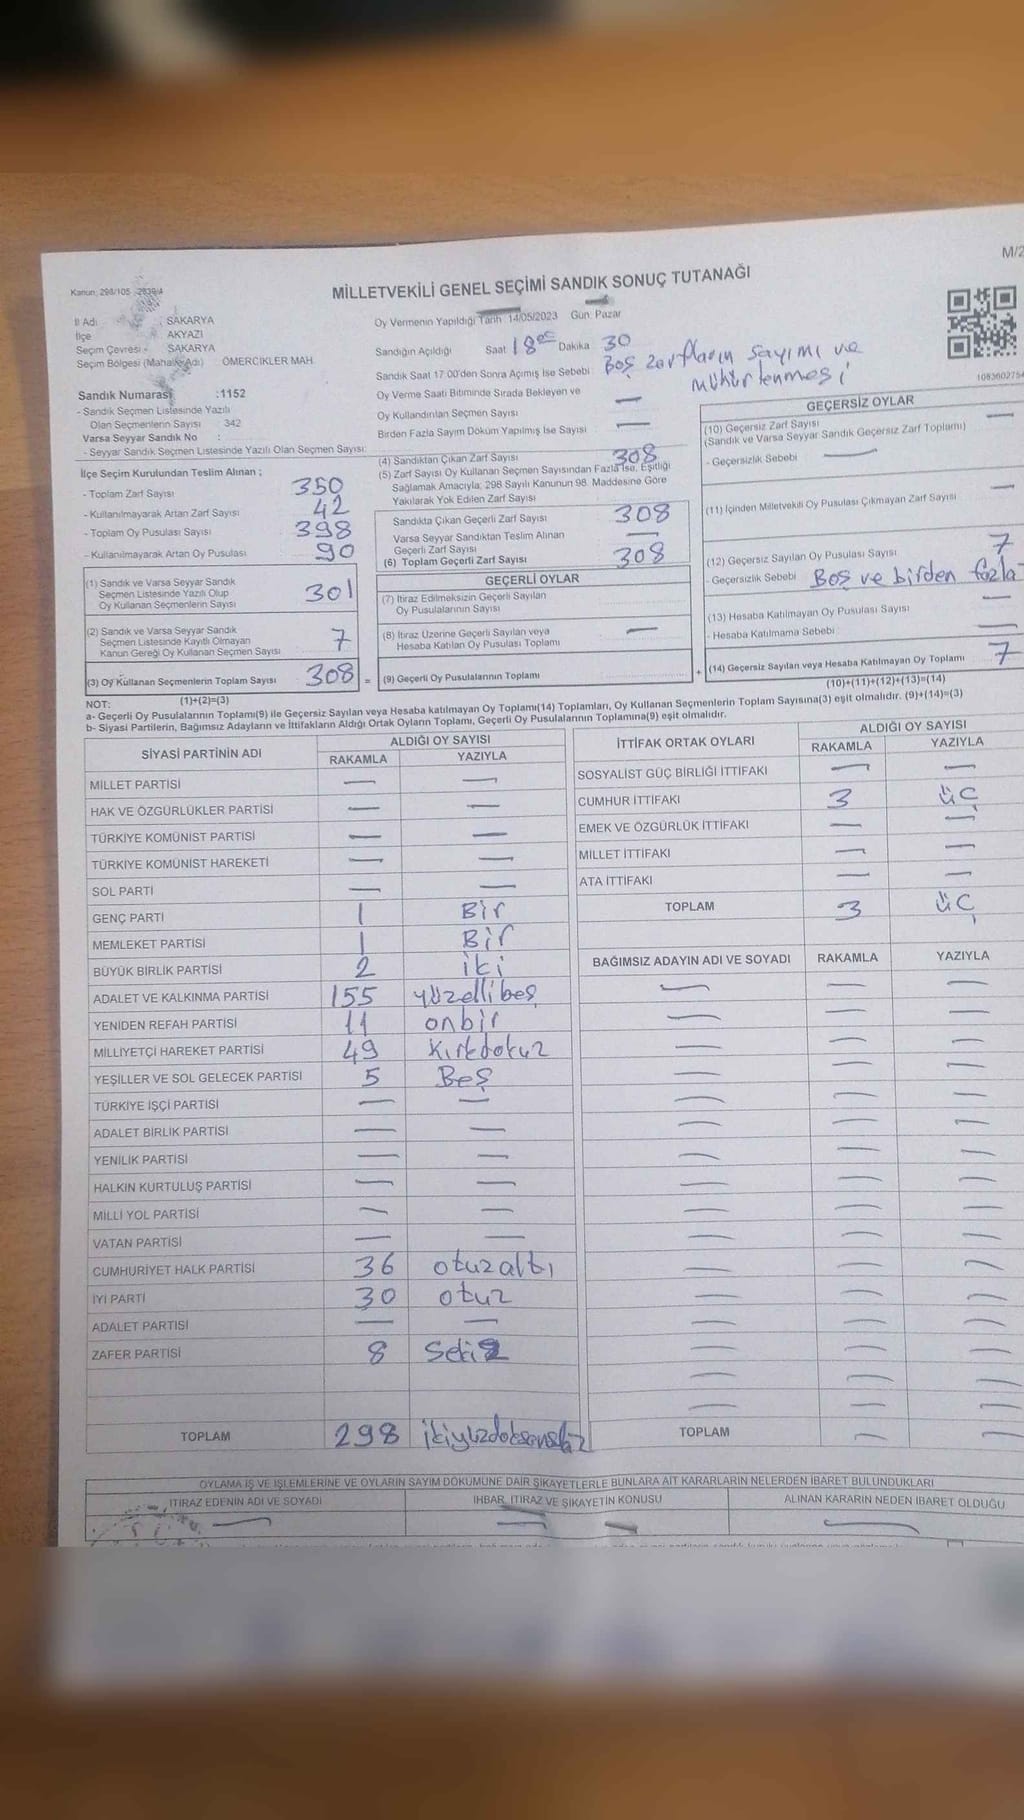 M/2
Kanun: 298/105 -2839/4
MİLLETVEKİLİ GENEL SEÇİMİ SANDIK SONUÇ TUTANAĞI
İl Adı : SAKARYA
İlçe : AKYAZI
Seçim Çevresi - SAKARYA
Seçim Bölgesi (Mahalle Adı) ÖMERCİKLER MAH.
Sandık Numarası :1152
- Sandık Seçmen Listesinde Yazılı
Olan Seçmenlerin Sayısı 342
Varsa Seyyar Sandık No :
- Seyyar Sandık Seçmen Listesinde Yazılı Olan Seçmen Sayısı:
Oy Vermenin Yapıldığı Tarih 14/05/2023 Gün: Pazar
Sandığın Açıldığı Saat 18 Dakika 30
Sandık Saat 17:00'den Sonra Açımış İse Sebebi Boş zarfların sayımı ve
mühürlenmesi
Oy Verme Saati Bitiminde Sırada Bekleyen ve —
Oy Kullandırılan Seçmen Sayısı
Birden Fazla Sayım Döküm Yapılmış İse Sayısı —
108360275
İlçe Seçim Kurulundan Teslim Alınan ;
- Toplam Zarf Sayısı 350
- Kullanılmayarak Artan Zarf Sayısı 42
- Toplam Oy Pusulası Sayısı 398
- Kullanılmayarak Artan Oy Pusulası 90
(1) Sandık ve Varsa Seyyar Sandık
Seçmen Listesinde Yazılı Olup 301
Oy Kullanan Seçmenlerin Sayısı
(2) Sandık ve Varsa Seyyar Sandık
Seçmen Listesinde Kayıtlı Olmayan 7
Kanun Gereği Oy Kullanan Seçmen Sayısı
(3) Oy Kullanan Seçmenlerin Toplam Sayısı 308 =
(1)+(2)=(3)
(4) Sandıktan Çıkan Zarf Sayısı 308
(5) Zarf Sayısı Oy Kullanan Seçmen Sayısından Fazla İse, Eşitliği
Sağlamak Amacıyla; 298 Sayılı Kanunun 98. Maddesine Göre
Yakılarak Yok Edilen Zarf Sayısı
Sandıkta Çıkan Geçerli Zarf Sayısı 308
Varsa Seyyar Sandıktan Teslim Alınan —
Geçerli Zarf Sayısı
(6) Toplam Geçerli Zarf Sayısı 308
GEÇERLİ OYLAR
(7) İtiraz Edilmeksizin Geçerli Sayılan
Oy Pusulalarının Sayısı
(8) İtiraz Üzerine Geçerli Sayılan veya —
Hesaba Katılan Oy Pusulası Toplamı
(9) Geçerli Oy Pusulalarının Toplamı +
GEÇERSİZ OYLAR
(10) Geçersiz Zarf Sayısı —
(Sandık ve Varsa Seyyar Sandık Geçersiz Zarf Toplamı)
- Geçersizlik Sebebi —
(11) İçinden Milletvekili Oy Pusulası Çıkmayan Zarf Sayısı —
(12) Geçersiz Sayılan Oy Pusulası Sayısı 7
- Geçersizlik Sebebi Boş ve birden fazla
(13) Hesaba Katılmayan Oy Pusulası Sayısı —
- Hesaba Katılmama Sebebi —
(14) Geçersiz Sayılan veya Hesaba Katılmayan Oy Toplamı 7
(10)+(11)+(12)+(13)=(14)
NOT:
a- Geçerli Oy Pusulalarının Toplamı(9) ile Geçersiz Sayılan veya Hesaba katılmayan Oy Toplamı(14) Toplamları, Oy Kullanan Seçmenlerin Toplam Sayısına(3) eşit olmalıdır. (9)+(14)=(3)
b- Siyasi Partilerin, Bağımsız Adayların ve İttifakların Aldığı Ortak Oyların Toplamı, Geçerli Oy Pusulalarının Toplamına(9) eşit olmalıdır.
SİYASİ PARTİNİN ADI ALDIĞI OY SAYISI
RAKAMLA YAZIYLA
MİLLET PARTİSİ — —
HAK VE ÖZGÜRLÜKLER PARTİSİ — —
TÜRKİYE KOMÜNİST PARTİSİ — —
TÜRKİYE KOMÜNİST HAREKETİ — —
SOL PARTİ — —
GENÇ PARTİ 1 Bir
MEMLEKET PARTİSİ 1 Bir
BÜYÜK BİRLİK PARTİSİ 2 iki
ADALET VE KALKINMA PARTİSİ 155 yüzellibeş
YENİDEN REFAH PARTİSİ 11 onbir
MİLLİYETÇİ HAREKET PARTİSİ 49 kırkdokuz
YEŞİLLER VE SOL GELECEK PARTİSİ 5 Beş
TÜRKİYE İŞÇİ PARTİSİ — —
ADALET BİRLİK PARTİSİ — —
YENİLİK PARTİSİ — —
HALKIN KURTULUŞ PARTİSİ — —
MİLLİ YOL PARTİSİ — —
VATAN PARTİSİ — —
CUMHURİYET HALK PARTİSİ 36 otuzaltı
İYİ PARTİ 30 otuz
ADALET PARTİSİ — —
ZAFER PARTİSİ 8 sekiz
TOPLAM 298 ikiyüzdoksansekiz
İTTİFAK ORTAK OYLARI ALDIĞI OY SAYISI
RAKAMLA YAZIYLA
SOSYALİST GÜÇ BİRLİĞİ İTTİFAKI — —
CUMHUR İTTİFAKI 3 üç
EMEK VE ÖZGÜRLÜK İTTİFAKI — —
MİLLET İTTİFAKI — —
ATA İTTİFAKI — —
TOPLAM 3 üç
BAĞIMSIZ ADAYIN ADI VE SOYADI RAKAMLA YAZIYLA
TOPLAM — —
OYLAMA İŞ VE İŞLEMLERİNE VE OYLARIN SAYIM DÖKÜMÜNE DAİR ŞİKAYETLERLE BUNLARA AİT KARARLARIN NELERDEN İBARET BULUNDUKLARI
İTİRAZ EDENİN ADI VE SOYADI İHBAR, İTİRAZ VE ŞİKAYETİN KONUSU ALINAN KARARIN NEDEN İBARET OLDUĞU
— — —